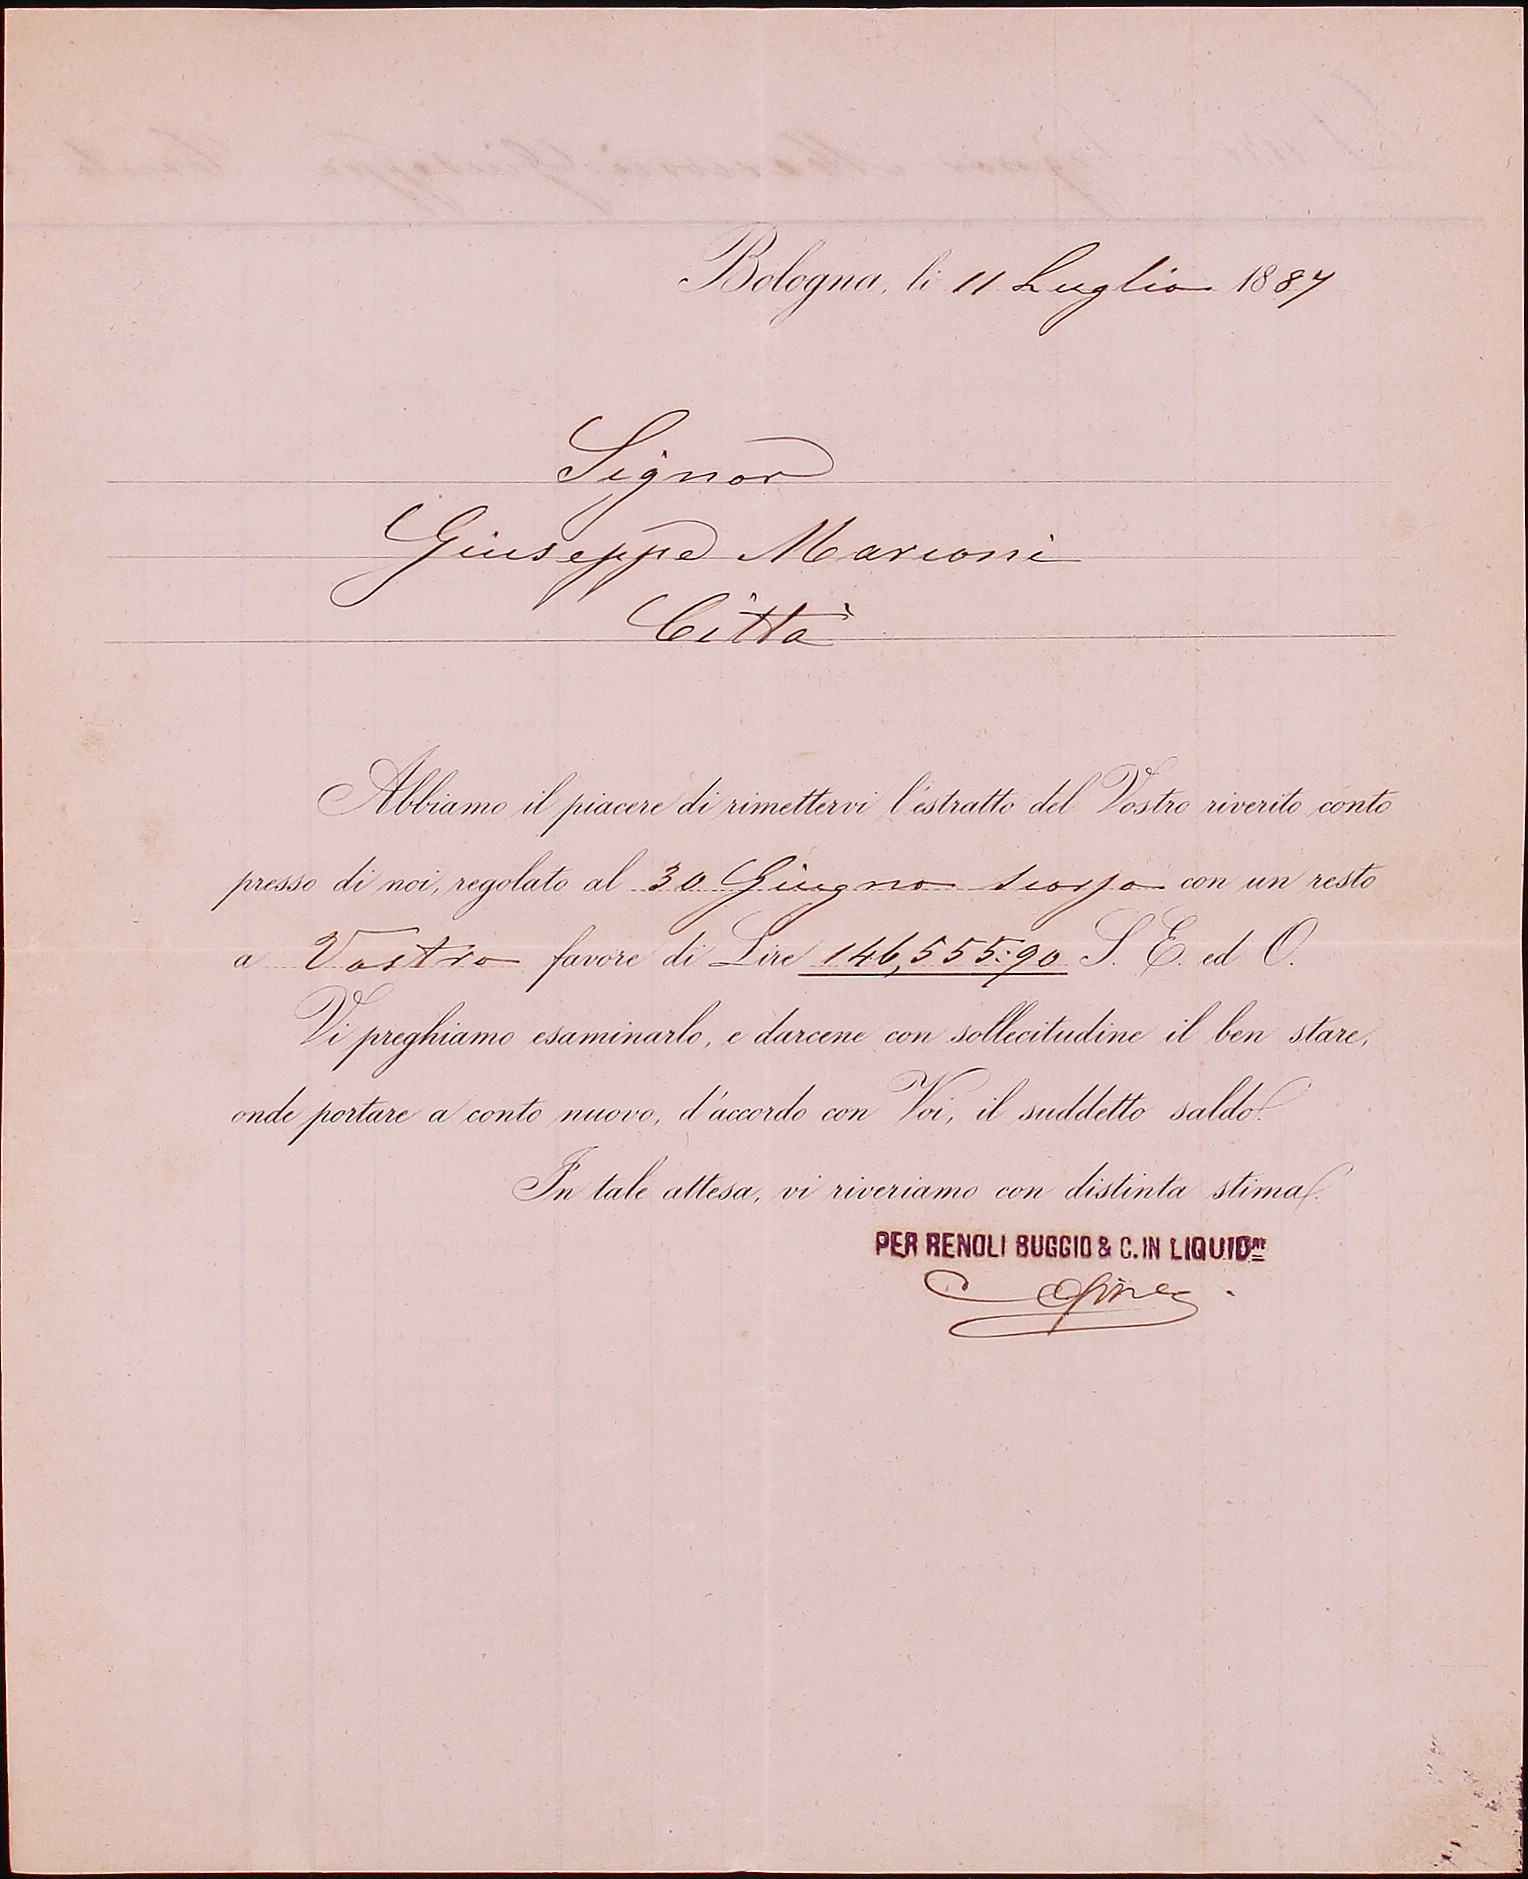 Bologna, li 11 Luglio 1887
Signor
Giuseppe Marconi
Città
Abbiamo il piacere di rimettervi l'estratto del Vostro riverito conto
presso di noi, regolato al 30 Giugno scorso con un resto
a Vostro favore di Lire 146,555:90 S. E. ed O.
Vi preghiamo esaminarlo, e darcene con sollecitudine il ben stare,
onde portare a conto nuovo, d'accordo con Voi, il suddetto saldo.
In tale attesa, vi riveriamo con distinta stima.
PER RENOLI BUGGIO & C. IN LIQUIDNE